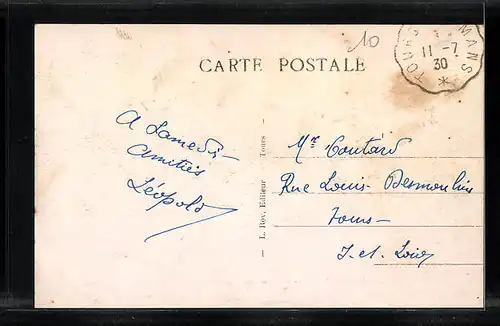 10
TOURS MANS
11 -7
30
*
CARTE POSTALE
A Samedi -
Amitiés
Léopold
— L. Rov, Editeur — Tours —
Mr Coutard
Rue Louis Desmoulins
Tours
I. et. Loire